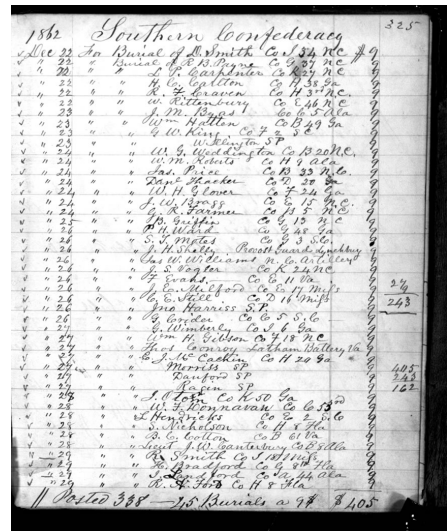 325
1862 Southern Confederacy
Dec 22 For Burial of D. Smith Co I 34 N.C. $9
" 22 " Burial of R B. Payne Co G 37 N.C 9
" 22 " " L P. Carpenter Co K 27 N.C 9
" 22 " " H. C. Carlton Co A 38 Ga 9
" 22 " " K. F. Craven Co H 3rd N.C. 9
" 22 " " W. Rittenbury Co E 46 N C 9
" 23 " " J. M. Boas Co C 5 Ala 9
" 23 " " Wm Hatten Co B 49 Ga 9
" 23 " " G W. King Co F 2 S C 9
" 23 " " Wellington SP 9
" 24 " " W. G. Weddington Co B 20 N.C. 9
" 24 " " W. M. Roberts Co H 9 Ala 9
" 24 " " Jas. Price Co B 33 N.C. 9
" 24 " " Danl Thacker Co D 20 Ga 9
" 24 " " W. H Glover Co F 24 Ga 9
" 24 " " J. W. Bragg Co E 15 N.C. 9
" 24 " " G. R. Farmer Co B 5 N.C. 9
" 25 " " B. Griffin Co G 13 N C 9
" 26 " " P. H. Ward Co G 48 Ga 9
" 26 " " S. T. Mates Co G 3 S.C. 9
" 26 " " J. H. Shelby Provost Guard Lynchburg 9
" 26 " " Jas W. Williams N. C. Artillery 9
" 26 " " J. S. Vogter Co K 24 NC 9
" 26 " " Evans. Co E 11 Va 9
" 26 " " J. C. Milford Co E 17 Miss 9 27
" 26 " " C. E. Still Co D 16 Miss 9 243
" 26 " " Jno Harriss S.P. 9
" 26 " " Crider Co E 5 S.C 9
" 27 " " G. Wimberly Co I 6 Ga 9
" 27 " " Wm H. Gibson Co F 18 NC 9
" 27 " " Conroy Latham Battery Va 9
" 27 " " C. J. McCachin Co H 24 Ga 9
" 27 " " Morriss SP 9 405
" 27 " " Danford SP 9 243
" 27 " " Ragen SP 9 162
" 28 " " Co K 50 Ga 9
" 28 " " W. F. Donnavan Co C 53rd 9
" 28 " " L Hendricks Co E 2 S.C 9
" 28 " " S. Nicholson Co H 8 Fla 9
" 28 " " B. C. Cotton Co B 61 Va 9
" 28 " " Lieut J. W. Canterbury Co B 8 Ala 9
" 29 " " R. Smith Co I 18 Miss 9
" 29 " " H. Bradford Co G 8th Fla 9
" 29 " " Co A 44 Ala 9
" 29 " " R. A. Ford Co H 8 Fla 9
Posted 338 45 Burials a 9$ $405